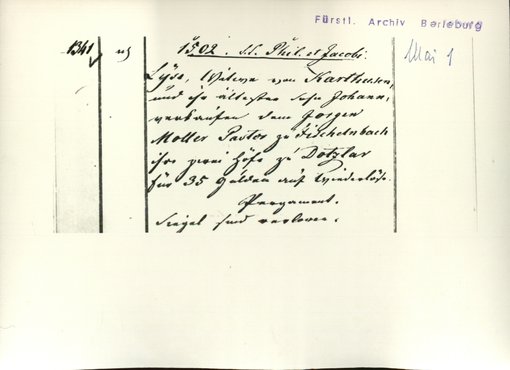 Fürstl. Archiv Berleburg
1341 1502. s.s. Phil. et Jacobi. Mai 1
Lyse, Witwe von Karthusen,
und ihr ältester Sohn Johann,
verkaufen dem Jorgen
Moller Pastor zu Fischelnbach
ihre zwei Höfe zu Dotzlar
für 35 Gulden auf Wiederlöse.
Pergament.
Siegel sind verloren.